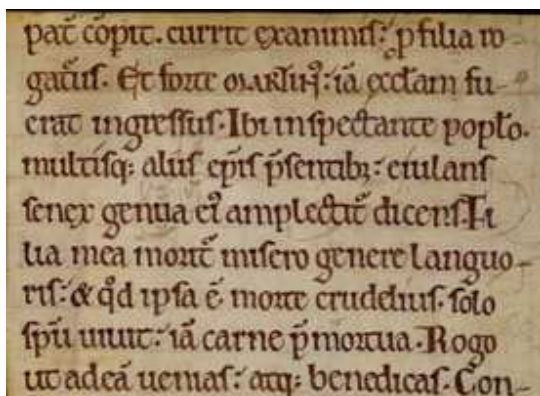 pat̄ cōpit. currit exanimis: ꝓ filia ro-
gaturus. Et forte MARTIN᷒: iā ecctam fu-
erat ingressus. Ibi inspectante poplo.
multisq; aliis ep̄is p̄sentib;: eiulans
senex genua ei᷒ amplectit̄ dicens. Fi
lia mea morit̄ misero genere languo-
ris: & qd̄ ipsa ē morte crudelius. solo
sp̄u uiuit: iā carne p̄mortua. Rogo
ut adeā uenias: atq; benedicas. Con-